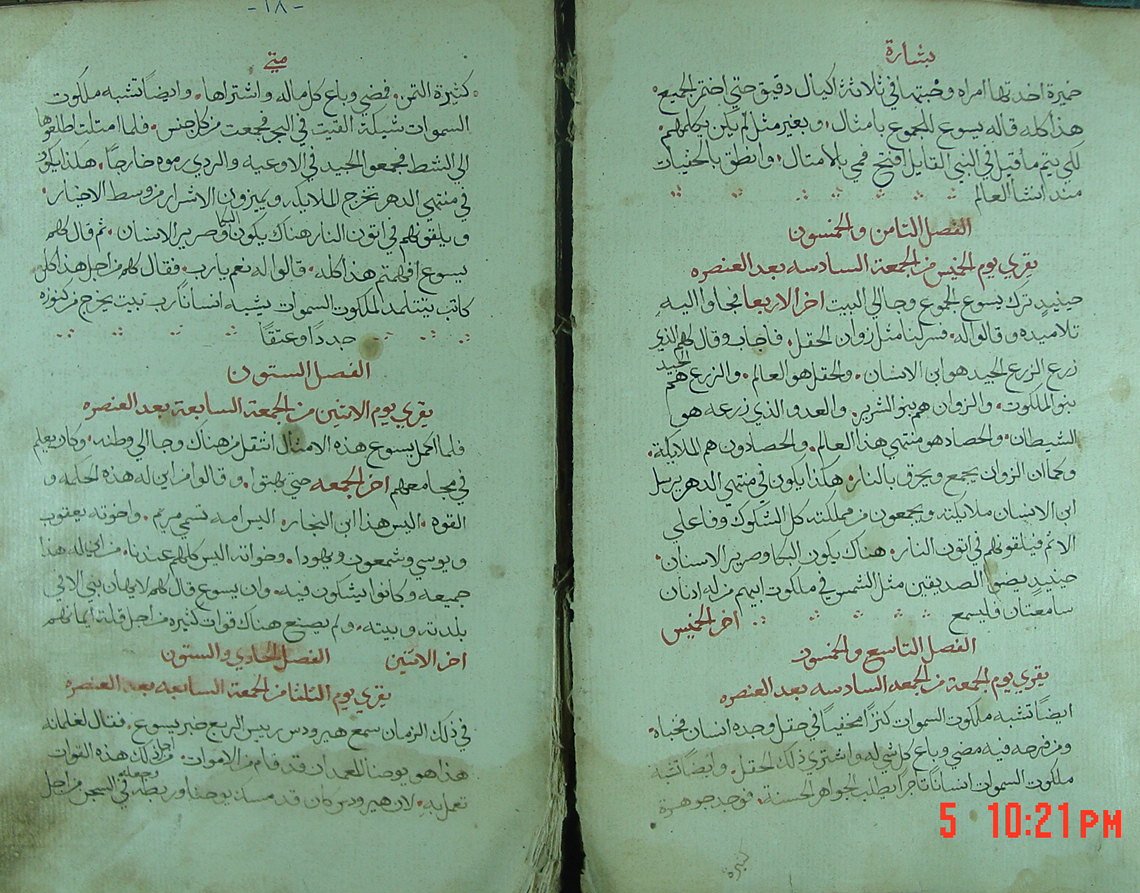 بشارة
خميرة اخدتها امراه وخبتها في ثلاثة اكيال دقيق حتي اختمر الجميع.
هذا كله قاله يسوع للجموع بامثال. وبغير مثل لم يكن يكلمهم
لكي يتم ما قيل في النبي القايل افتح فمي بالامثال. وانطق بالخفيات
منذ انشا العالم
الفصل الثامن والخمسون
يقري يوم الخميس من الجمعة السادسه بعد العنصره
حينيدٍ ترك يسوع الجموع وجا الي البيت اخر الاربعا فجاوا اليه
تلاميده وقالوا له. فسر لنا مثل زوان الحقل. فاجاب وقال لهم الذي
زرع الزرع الجيد هو ابن الانسان. والحقل هو العالم. والزرع الجيد هم
بنو الملكوت. والزوان هم بنو الشرير. والعدو الذي زرعه هو
الشيطان. والحصاد هو منتهي هذا العالم. والحصادون هم الملايكة.
وكما ان الزوان يجمع ويحرق بالنار. هكذا يكون في منتهي الدهر يرسل
ابن الانسان ملايكته ويجمعون من مملكته كل الشكوك وفاعلي
الاثم فيلقوهم في اتون النار. هناك يكون البكا وصرير الاسنان.
حينيدٍ يضوا الصديقين مثل الشمس في ملكوت ابيهم من له ادنان
سامعتان فليسمع اخر الخميس
الفصل التاسع والخمسون
يقري يوم الجمعة من الجمعه السادسه بعد العنصره
ايضًا تشبه ملكوت السموات كنزًا مخفيًا في حقل وجده انسان فخباه
ومن فرحه فيه مضي وباع كل شي له واشتري ذلك الحقل. وايضًا تشبه
ملكوت السموات انسانًا تاجرًا يطلب الجواهر الحسنة. فوجد جوهرة
كثيرة
-١٨-
متي
كثيرة الثمن. فمضي وباع كل ماله واشتراها. وايضًا تشبه ملكوت
السموات شبكة القيت في البحر فجمعت من كل جنس. فلما امتلت اطلعوها
الي الشط فجمعو الجيد في الاوعيه والردي رموه خارجًا. هكذا يكون
في منتهي الدهر تخرج الملايكه ويميزون الاشرار من وسط الاخيار.
ويلقوهم في اتون النار هناك يكون البكا وصرير الاسنان. ثم قال لهم
يسوع افهمتم هذا كله. قالوا له نعم يارب. فقال لهم من اجل هذا كل
كاتب يتتلمد لملكوت السموات يشبه انسانًا رب بيت يخرج من كنوزه
جددًا وعتقًا
الفصل الستون
يقري يوم الاثنين من الجمعة السابعة بعد العنصره
فلما اكمل يسوع هذه الامثال انتقل من هناك وجا الي وطنه. وكان يعلم
في مجامعهم اخر الجمعه حتي بهتوا. وقالوا من اين له هذه الحكمه و
القوه. اليس هذا ابن النجار. اليس امه تسمي مريم. واخوته يعقوب
ويوسي وشمعون ويهودا. وخواته اليس كلهم عندنا. من اين له هذا
جميعه وكانوا يشكون فيه. وان يسوع قال لهم لا يهان نبي الا في
بلدته وبيته. ولم يصنع هناك قوات كثيره من اجل قلة ايمانهم
اخر الاثنين الفصل الحادي والستون
يقري يوم الثلثا من الجمعة السابعه بعد العنصره
في ذلك الزمان سمع هيرودس رييس الربع خبر يسوع. فقال لغلمانه
هذا هو يوحنا المعمدان قد قام من الاموات. من اجل ذلك هذه القوات
تعمل به. لان هيرودس كان قد مسك يوحنا وربطه وجعله في السجن من اجل
5 10:21PM